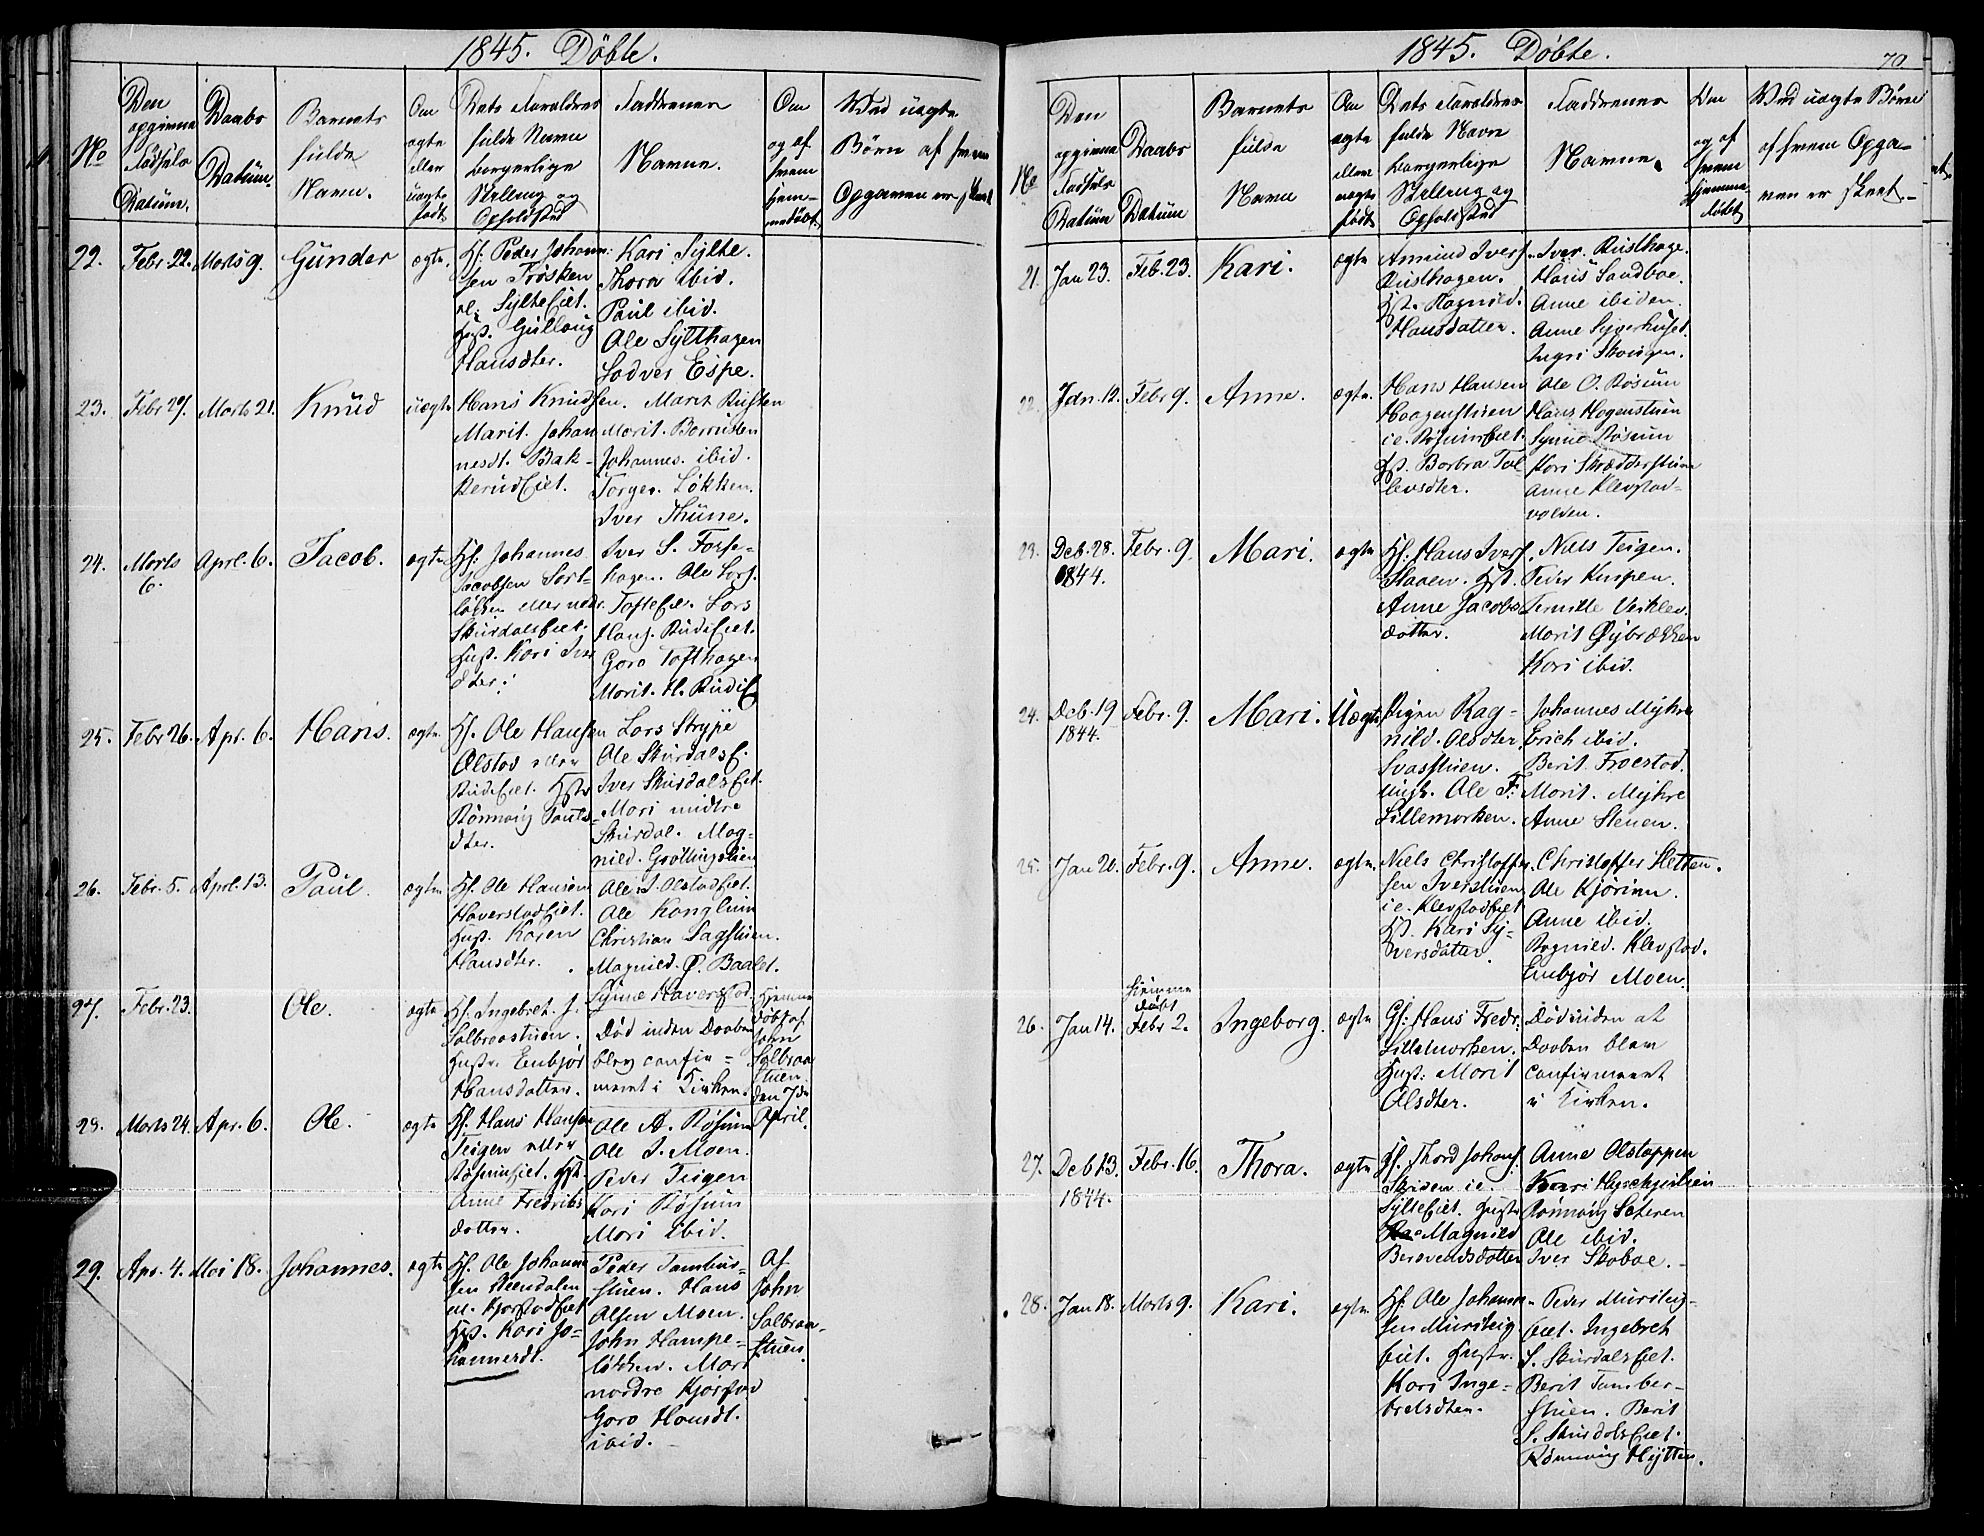 1845. Döbte.
No
Den
opgivne
Fødsels
Datum.
Daabs
Datum.
Barnets
fulde
Navn.
Om
ægte
eller
uægte
født
Dets Foreldres
fulde Navne
borgerlige
Stilling og
Opholdsted
Faddrenes
Navne.
Om
og af
hvem
hjem-
medöbt.
Ved uægte
Börn af hvem
Opgaven er skeet
22. Febr. 22. Marts 9. Gunder ægte.
Gf. Peder Johanne-
sen Frösken
el. Sylteeiet.
Hust. Gullaug
Hansdter.
Kari Sylte.
Thora ibid.
Paul ibid.
Ole Sylthagen
Lodver Espe.
23. Febr 27. Marts 21. Knud uægte
Hans Knudsen.
Marit Johan
nesdt. Bak-
keruseiet.
Marit Rusten
Marit Borrusten
Johannes ibid.
Torger Løkken.
Iver Thune.
24. Marts
6.
Aprl. 6. Jacob. ægte
Gf. Johannes
Jacobsen
eller nedr.
Skurdalseiet.
Hust. Kari Iver
dter.
Iver S.
hagen. Ole Lars.
Tofteei. Lars
Hans. Rudieiet.
Goro Tofthagen
Marit H. Rudi
25. Febr 26. Apr. 6. Hans. ægte
Gf. Ole Hansen
Olstad eller
Rudieiet. Hstr
Rönnoug Pauls
dter.
Lars Strype
Ole Skurdalse.
Iver Skurdalseiet.
Mari midtre
Skurdal. Mag-
nild.
26. Febr. 5. Aprl. 13. Paul. ægte
Gf. Ole Hansen
Haverstadeiet.
Hust. Karen
Hansdter.
Ole J. Olstadeiet.
Ole Konglien
Christian Sagstuen.
Magnild Ø. Baalet.
Synne Haverstad.
27. Febr. 23. Ole. ægte
Gf. Ingebret J.
Solbraastuen.
Hustr. Embjør
Hansdatter.
Död inden Daaben
blev confir-
meret i Kirken.
Hjemme
döbt af
John
Solbraa
stuen
den 7de
April.
28. Marts 24. Apr. 6. Ole. ægte
Gf. Hans Hansen
Teigen eller
Røsumeiet. Hst.
Anne Fredriks
datter.
Ole A. Røsum
Ole J. Moen.
Peder Teigen
Kari Røsum
Mari ibid.
29. Apr. 4. Mai 18. Johannes. ægte
Gf. Ole Johanne
sen Steendalen
el. Kjorstadeiet
Hst. Kari Jo-
hannesdt.
Peder Tambur-
stuen. Hans
Olsen Moen.
John Hampe-
løkken. Mari
nordre Kjorstad
Goro Hansdt.
ibid.
Af
John
Solbraa-
stuen.
1845. Döbte.
70
No
Den
opgivne
Fødsels
Datum
Daabs
Datum
Barnets
fulde
Navn
Om
ægte
eller
uægte
födt
Dets Foreldres
fulde Navn
borgerlige
Stilling og
Opholdsted
Faddrenes
Navne.
Om
og af
hvem
hjemme
döbt
Ved uægte Børn
af hvem Opga-
ven er skeet.
21. Jan 23. Feb. 23. Kari. ægte
Amund Ivers.
Rusthagen.
Hst. Ragnild
Hansdatter.
Iver Rusthage.
Hans Sandboe.
Anne ibiden.
Anne Sygerhuset.
Ingri Skougen.
22. Jan. 12. Febr 9. Anne. ægte.
Hans Hansen
Haagenstuen
ie. Røsumeiet.
Hst. Borbra Tol
levsdter.
Ole O. Røsum
Hans Hogenstuen
Synne Røsum
Kari Skrædderstuen
Anne Klevstad-
volden.
23. Deb. 28.
1844.
Febr. 9. Mari. ægte
Gf. Hans Ivers.
Haaen. Hst.
Anne Jacobs
datter.
Niels Teigen.
Peder Kuspen.
Pernille Veiklev.
Marit Øybrækken
Kari ibid.
24. Deb. 19
1844.
Febr. 9. Mari. Uægte
Pigen Rag-
nild Olsdter
Svastuen.
ungk. Ole F.
Lillemorken.
Johannes Myhre
Erich ibid.
Berit Froestad.
Marit Myhre
Anne Stenen.
25. Jan 20. Febr. 9. Anne. ægte.
Niels Christoffer
sen Iverstuen
ie. Klevstadeiet
Hst. Kari Sy-
versdatter.
Christoffer Sletten.
Ole Kjörum.
Anne ibid.
Ragnild Klevstad.
Embjör Moen.
26. Jan 14.
hjemme
döbt
Febr 2.
Ingeborg. ægte
Gf. Hans Fredr.
Lillemorken.
Hust: Marit
Olsdter.
Död inden at
Daaben blev
confirmeret
i Kirken.
27. Deb 13.
1844.
Febr. 16. Thora. ægte
Gf. Thord Johans.
Skriden ie.
Sylteeiet. Hustr
Magnild
Berevendsdatter
Anne Olstappen
Kari
Rönnoug Sateren
Ole ibid.
Iver Skaboe.
28. Jan 18. Marts 9. Kari. ægte
Gf. Ole Johanne-
sen Mursteig
eiet. Hustr.
Kari Inge-
bretsdter.
Peder Mursteig-
eiet. Ingebret
S. Skurdalseiet.
Berit Tamber-
stuen. Berit
S. Skurdalseiet.
Rønnoug Hytten.